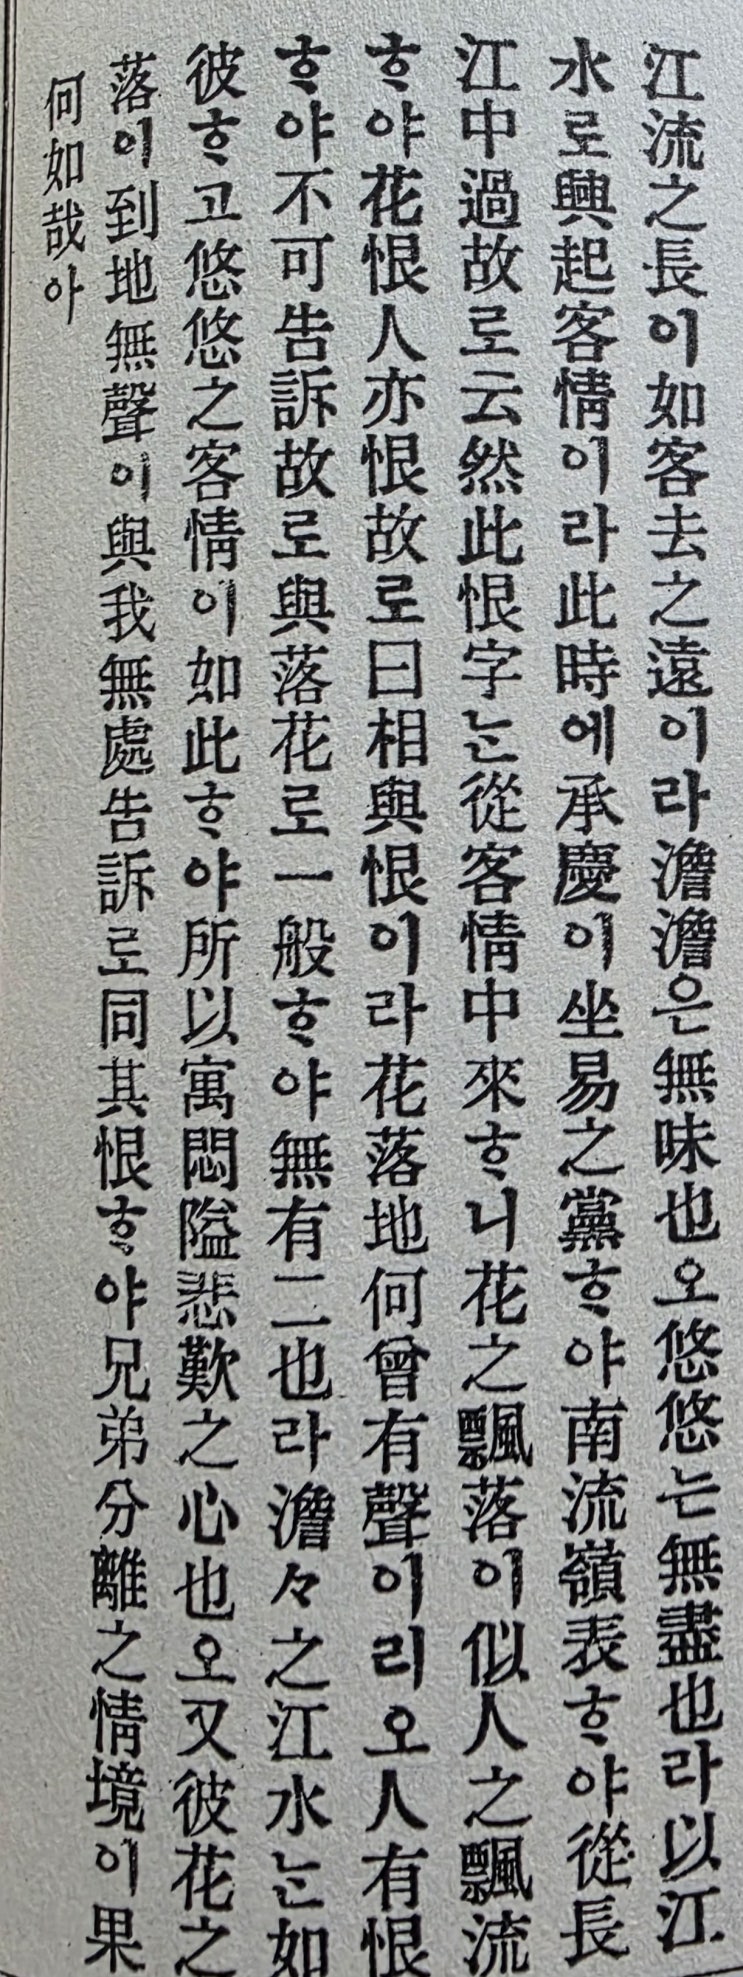 江流之長이如客去之遠이라澹澹은無味也오悠悠는無盡也라以江
水로興起客情이라此時에承慶이坐易之黨ᄒᆞ야南流嶺表ᄒᆞ야從長
江中過故로云然此恨字ᄂᆞᆫ從客情中來ᄒᆞ니花之飄落이似人之飄流
ᄒᆞ야花恨人亦恨故로曰相與恨이라花落地何曾有聲이리오人有恨
ᄒᆞ야不可告訴故로與落花로一般ᄒᆞ야無有二也라澹々之江水ᄂᆞᆫ如
彼ᄒᆞ고悠悠之客情이如此ᄒᆞ야所以寓悶隘悲歎之心也오又彼花之
落이到地無聲이與我無處告訴로同其恨ᄒᆞ야兄弟分離之情境이果
何如哉아